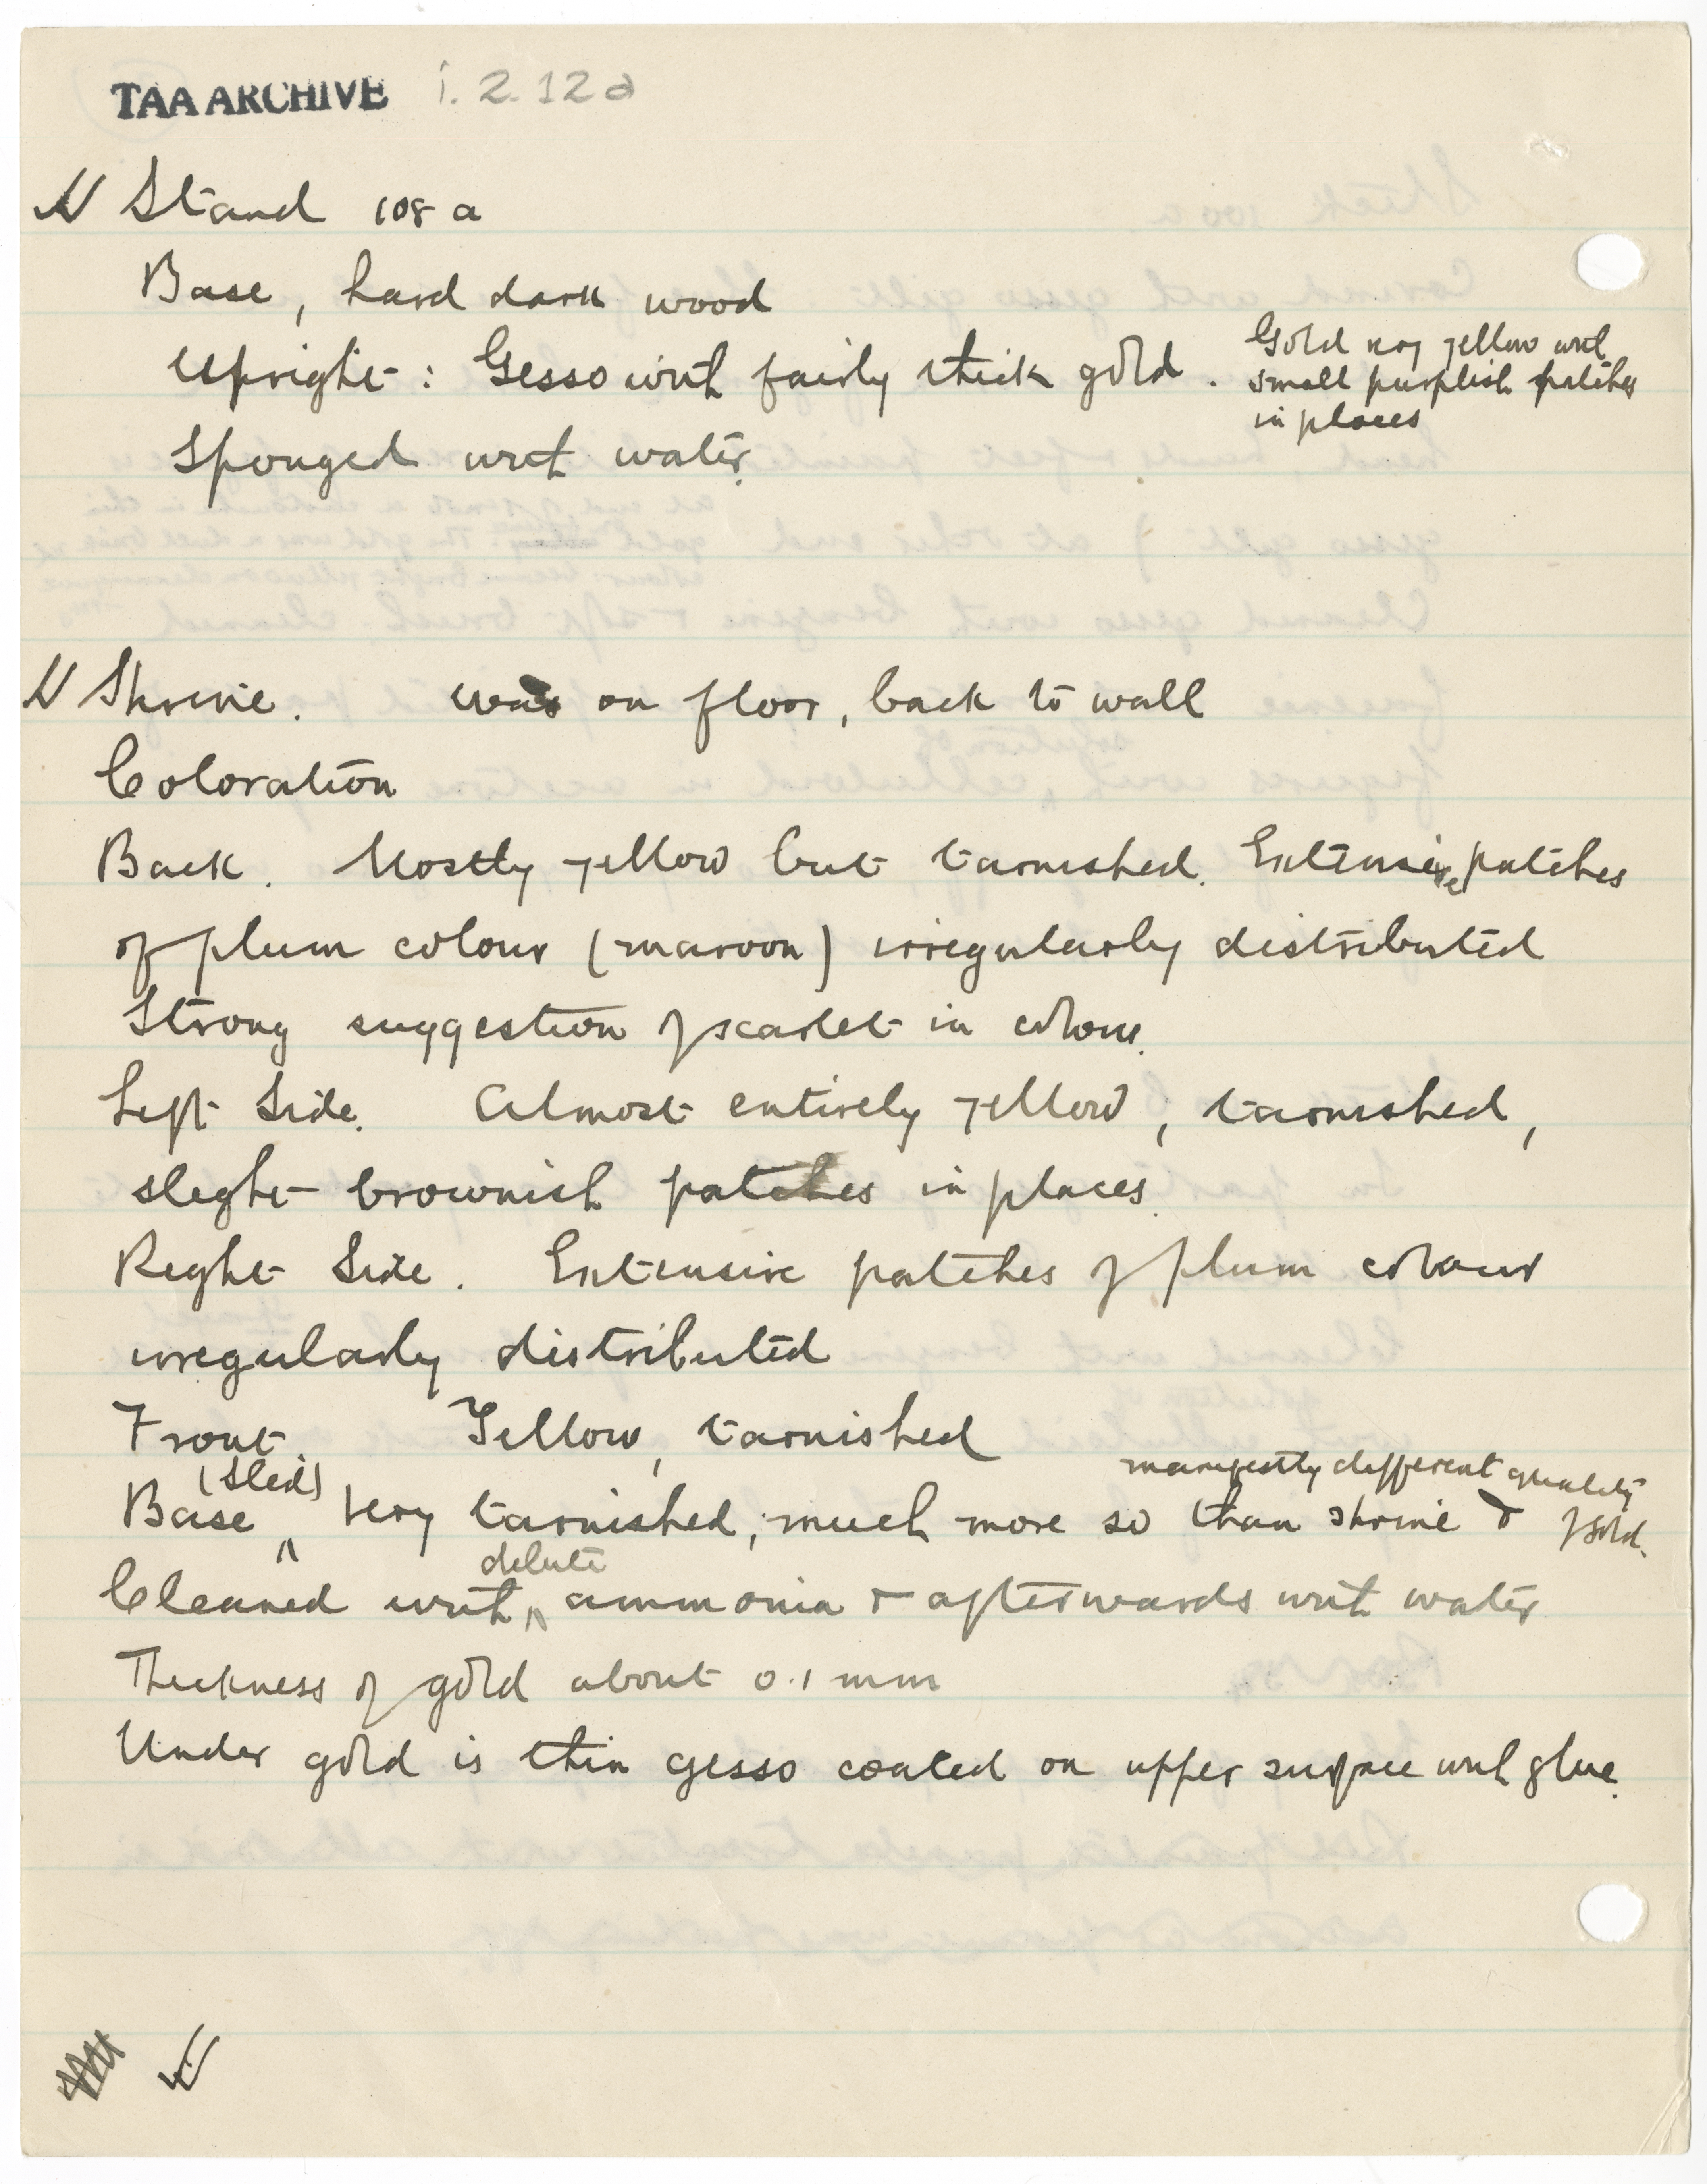 TAA ARCHIVE i. 2. 12a
Stand 108 a
Base, hard dark wood
Upright: Gesso with fairly thick gold.
Gold yellow with
small purplish patches
in places
Sponged with water.
Shrine. was on floor, back to wall
Coloration
Back. Mostly yellow but tarnished. Extensive patches
of plum colour (maroon) irregularly distributed
Strong suggestion of scarlet in colour.
Left Side. Almost entirely yellow, tarnished,
slight brownish patches in places.
Right Side. Extensive patches of plum colour
irregularly distributed
Front. Yellow, tarnished
Base (Sled) Very tarnished, much more so than shrine & manifestly different quality of gold.
Cleaned with dilute ammonia & afterwards with water
Thickness of gold about 0.1 mm
Under gold is thin gesso coated on upper surface with glue.